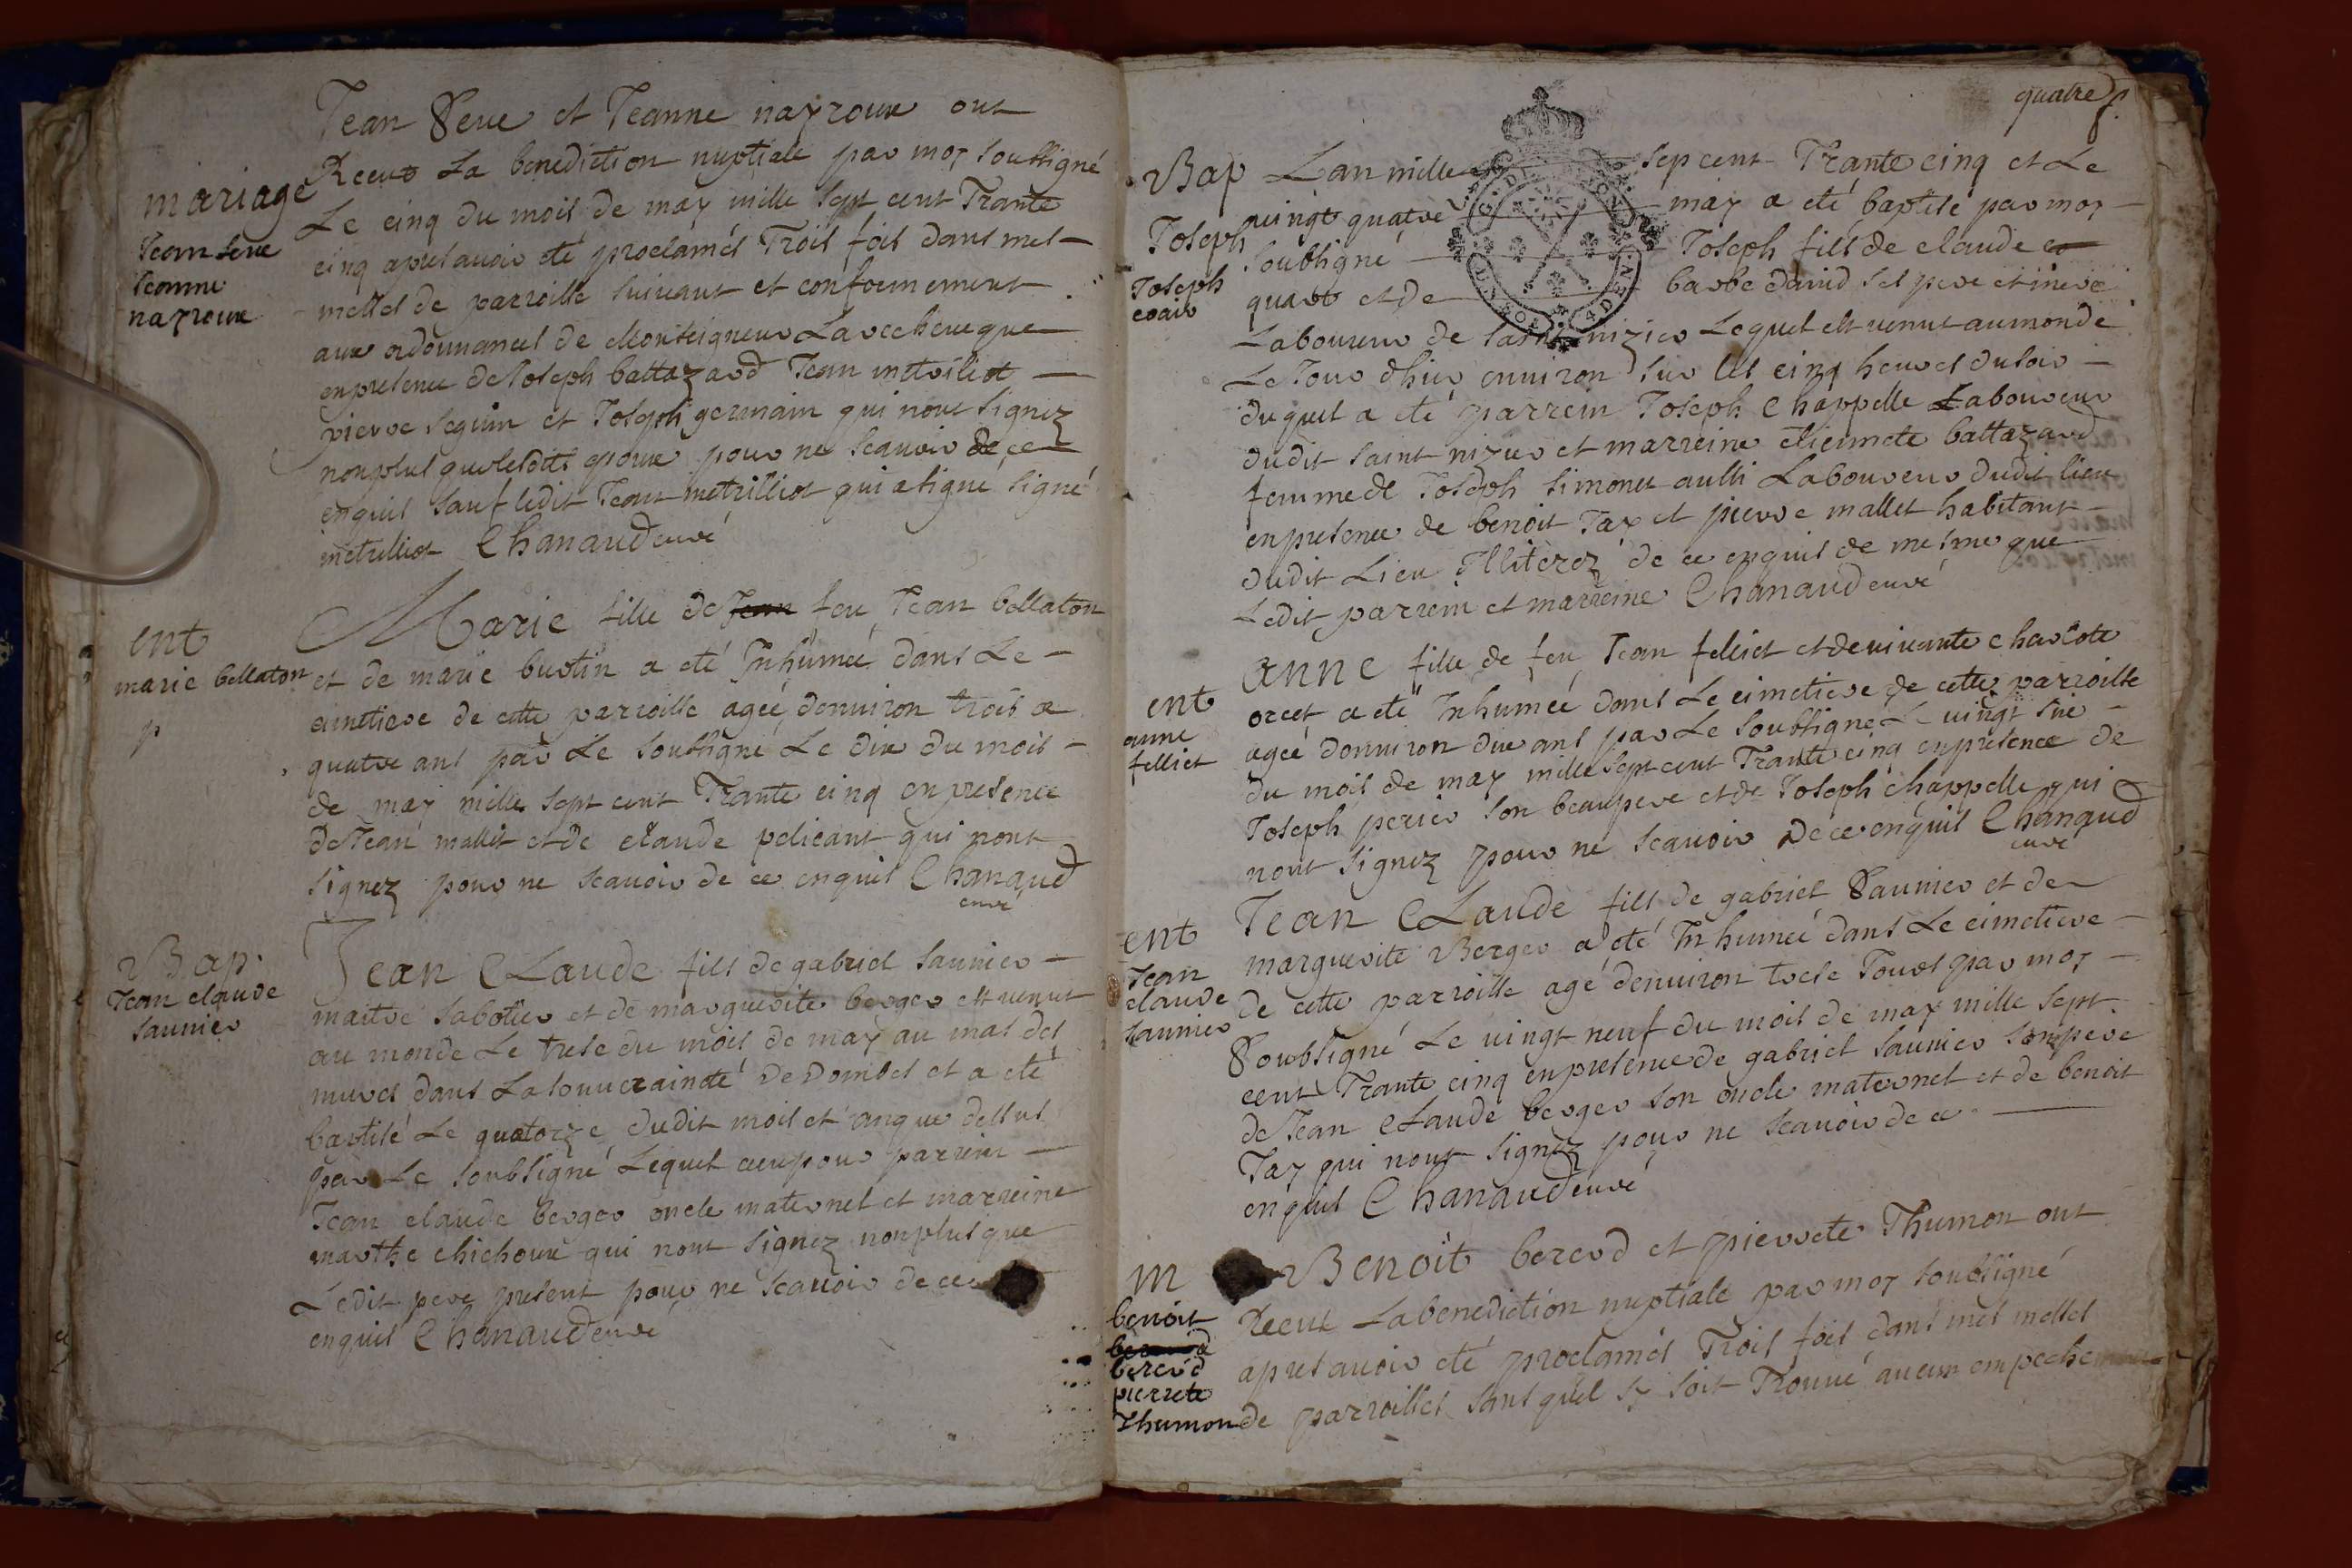 mariage
Jean seve
Jeanne
nayroux
Jean Seve et Jeanne nayroux ont
Receus La benediction nuptiale par moy soubsigné
Le cinq du mois de may mille sept cent Trante
cinq apres avoir eté proclamés Trois fois dans mes
messes de parroisse suivant et conformement
aux ordonnances de Monseigneur Larcheveque
en presence de Joseph battazard Jean metrilliot
pierre seguin et Joseph germain qui nont signez
non plus que lesdits epoux pour ne scavoir de ce
enquis sauf ledit Jean metrilliot qui a signé signé
metrilliot Chanaud curé
ent
marie bellaton
p
Marie fille de Jean feu Jean bellaton
et de marie burtin a eté Inhumeé dans Le
cimetiere de cette parroisse ageé denviron trois a
quatre ans par Le soubsigné Le dix du mois
de may mille sept cent Trante cinq en presence
de Jean mallet et de claude pelicant qui nont
signez pour ne scavoir de ce enquis Chanaud
curé
Bap.
Jean claude
saunier
Jean CLaude fils de gabriel saunier
maitre sabotier et de marguerite berger est venut
au monde Le trese du mois de may au mas des
mures dans La souveraineté De Dombes et a eté
baptisé Le quatorze dudit mois et an que dessus
par Le soubsigné Lequel a eu pour parrein
Jean claude berger oncle maternel et marreine
marthe chichoux qui nont signez non plus que
Ledit pere present pour ne scavoir de ce
enquis Chanaud curé
quatre p.
Bap
Joseph
Joseph
Lan mille sep cent Trante cinq et Le
vingt quatre may a eté baptisé par moy
soubsigné Joseph fils de claude
et de barbe david ses pere et mere
Laboureur de saint nizier Lequel est venut au monde
Le Jour dhier environ sur les cinq heures du soir
duquel a eté parrein Joseph Chappelle Laboureur
dudit saint nizier et marreine etiennete battazard
femme de Joseph simonet aussi Laboureur dudit lieu
en presence de benoit Tay et pierre mallet habitant
dudit Lieu Illiterez de ce enquis de mesme que
Ledit parrein et marreine Chanaud curé
ent
anne
felliet
anne fille de feu Jean felliet et de vivante charlote
orcet a eté Inhumeé dans Le cimetiere de cette parroisse
ageé denviron dix ans par Le soubsigné Le vingt six
du mois de may mille sept cent Trante cinq en presence de
Joseph perier son beaupere et de Joseph chappelle qui
nont signez pour ne scavoir De ce enquis Chanaud
curé
ent
Jean
claude
saunier
Jean CLaude fils de gabriel Saunier et de
marguerite Berger a eté Inhumeé dans Le cimetiere
de cette parroisse agé denviron trese Jours par moy
Soubsigné Le vingt neuf du mois de may mille sept
cent Trante cinq en presence de gabriel saunier son pere
de Jean CLaude berger son oncle maternel et de benoit
Tay qui nont signez pour ne scavoir de ce
enquis Chanaud curé
m
benoit
bererd
pierrete
Thumon
Benoit bererd et pierrete Thumon ont
Receut La benediction nuptiale par moy soubsigné
apres avoir eté proclamés Trois fois dans mes messes
de parroisses sans quel sy soit Trouvé aucun empechement